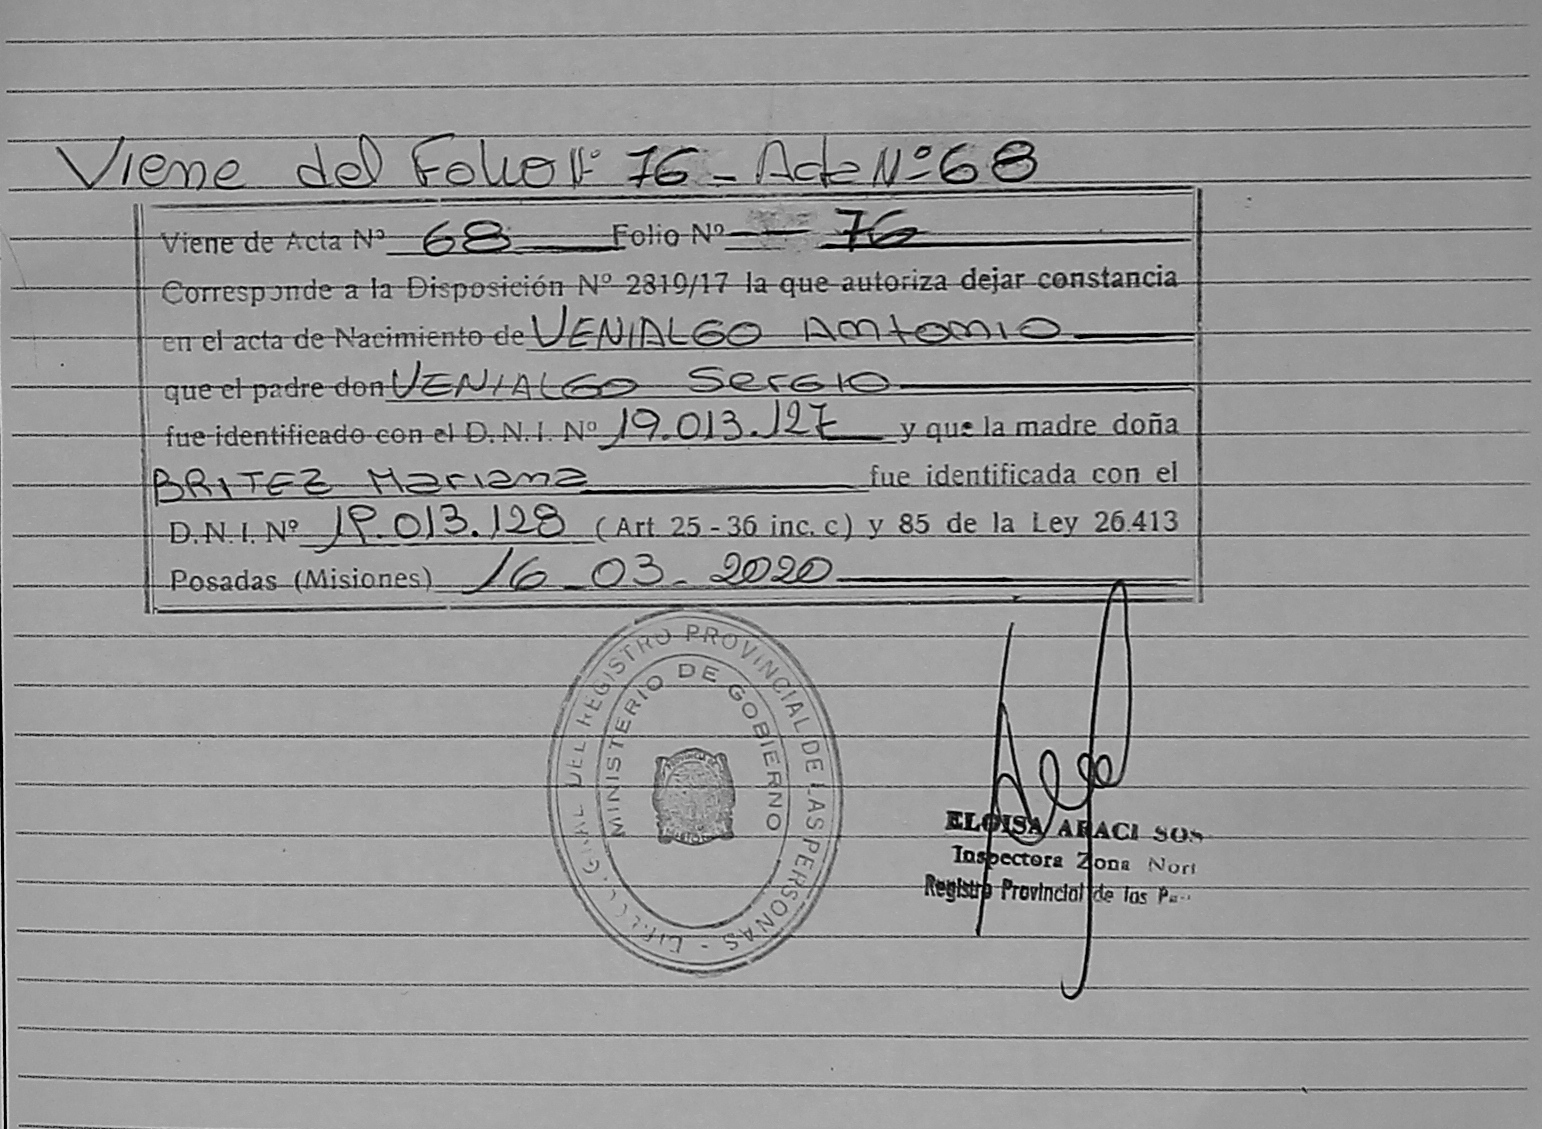 Viene del Folio Nº 76 - Acta Nº 68
Viene de Acta Nº 68 Folio Nº 76
Corresponde a la Disposición Nº 2819/17 la que autoriza dejar constancia
en el acta de Nacimiento de VENIALGO Antonio
que el padre don VENIALGO Sergio
fue identificado con el D.N.I. Nº 19.013.127 y que la madre doña
BRITEZ Mariana fue identificada con el
D.N.I. Nº 19.013.128 (Art. 25 - 36 inc. c) y 85 de la Ley 26.413
Posadas (Misiones) 16-03-2020
DEL REGISTRO PROVINCIAL DE LAS PERSONAS -
MINISTERIO DE GOBIERNO
ELOISA ARACI
Inspectora Zona
Registro Provincial de las